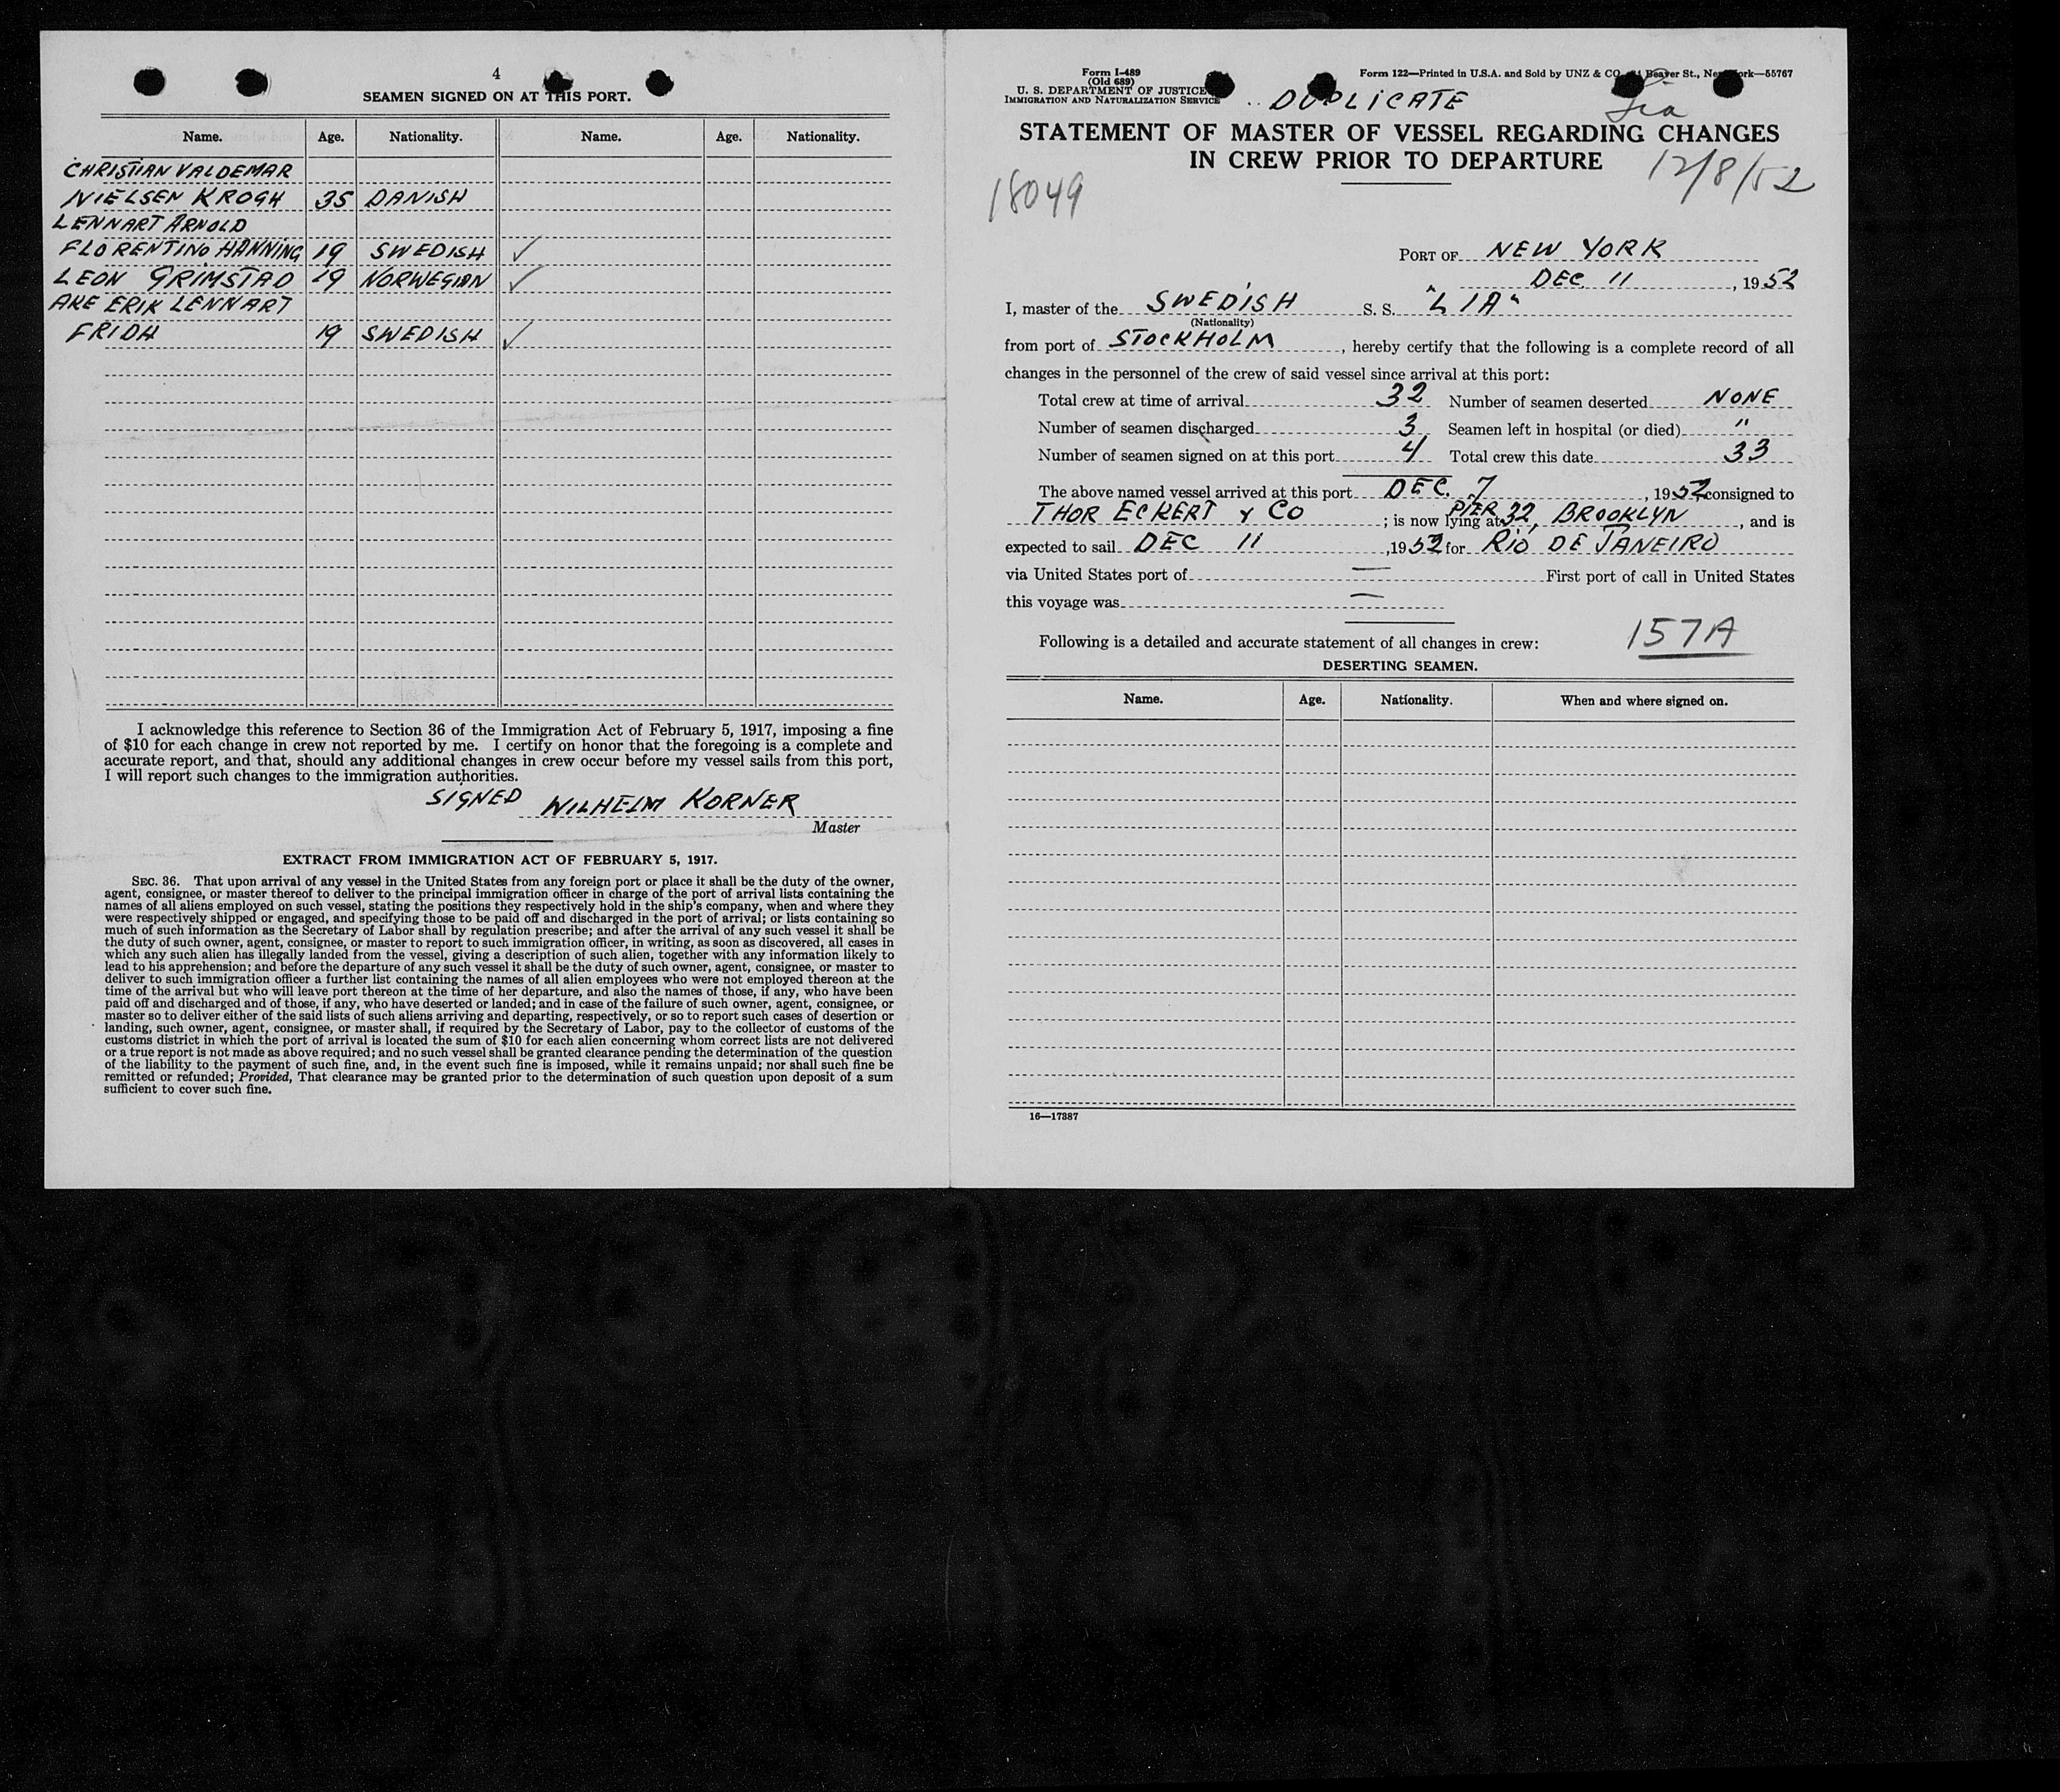 4
SEAMEN SIGNED ON AT THIS PORT.
Name. Age. Nationality. Name. Age. Nationality.
CHRISTIAN VALDEMAR
NIELSEN KROGH 35 DANISH
LENNART ARNOLD
FLORENTINO HANNING 19 SWEDISH ✓
LEON GRIMSTAD 19 NORWEGIAN ✓
AKE ERIK LENNART
FRIDH 19 SWEDISH ✓
I acknowledge this reference to Section 36 of the Immigration Act of February 5, 1917, imposing a fine
of $10 for each change in crew not reported by me. I certify on honor that the foregoing is a complete and
accurate report, and that, should any additional changes in crew occur before my vessel sails from this port,
I will report such changes to the immigration authorities.
SIGNED WILHELM KORNER
Master
EXTRACT FROM IMMIGRATION ACT OF FEBRUARY 5, 1917.
SEC. 36. That upon arrival of any vessel in the United States from any foreign port or place it shall be the duty of the owner,
agent, consignee, or master thereof to deliver to the principal immigration officer in charge of the port of arrival lists containing the
names of all aliens employed on such vessel, stating the positions they respectively hold in the ship's company, when and where they
were respectively shipped or engaged, and specifying those to be paid off and discharged in the port of arrival; or lists containing so
much of such information as the Secretary of Labor shall by regulation prescribe; and after the arrival of any such vessel it shall be
the duty of such owner, agent, consignee, or master to report to such immigration officer, in writing, as soon as discovered, all cases in
which any such alien has illegally landed from the vessel, giving a description of such alien, together with any information likely to
lead to his apprehension; and before the departure of any such vessel it shall be the duty of such owner, agent, consignee, or master to
deliver to such immigration officer a further list containing the names of all alien employees who were not employed thereon at the
time of the arrival but who will leave port thereon at the time of her departure, and also the names of those, if any, who have been
paid off and discharged and of those, if any, who have deserted or landed; and in case of the failure of such owner, agent, consignee, or
master so to deliver either of the said lists of such aliens arriving and departing, respectively, or so to report such cases of desertion or
landing, such owner, agent, consignee, or master shall, if required by the Secretary of Labor, pay to the collector of customs of the
customs district in which the port of arrival is located the sum of $10 for each alien concerning whom correct lists are not delivered
or a true report is not made as above required; and no such vessel shall be granted clearance pending the determination of the question
of the liability to the payment of such fine, and, in the event such fine is imposed, while it remains unpaid; nor shall such fine be
remitted or refunded; Provided, That clearance may be granted prior to the determination of such question upon deposit of a sum
sufficient to cover such fine.
Form I-489
(Old 689)
U. S. DEPARTMENT OF JUSTICE
IMMIGRATION AND NATURALIZATION SERVICE
Form 122—Printed in U.S.A. and Sold by UNZ & CO. Beaver St., New York—55767
DUPLICATE
Lia
STATEMENT OF MASTER OF VESSEL REGARDING CHANGES
IN CREW PRIOR TO DEPARTURE
12/8/52
18049
PORT OF NEW YORK
DEC 11, 1952
I, master of the SWEDISH S. S. "LIA"
(Nationality)
from port of STOCKHOLM, hereby certify that the following is a complete record of all
changes in the personnel of the crew of said vessel since arrival at this port:
Total crew at time of arrival 32 Number of seamen deserted NONE
Number of seamen discharged 3 Seamen left in hospital (or died) "
Number of seamen signed on at this port 4 Total crew this date 33
The above named vessel arrived at this port DEC. 7, 1952, consigned to
THOR ECKERT & CO; is now lying at PIER 32, BROOKLYN, and is
expected to sail DEC 11, 1952 for RIO DE JANEIRO
via United States port of — First port of call in United States
this voyage was —
Following is a detailed and accurate statement of all changes in crew:
157A
DESERTING SEAMEN.
Name. Age. Nationality. When and where signed on.
16—17387